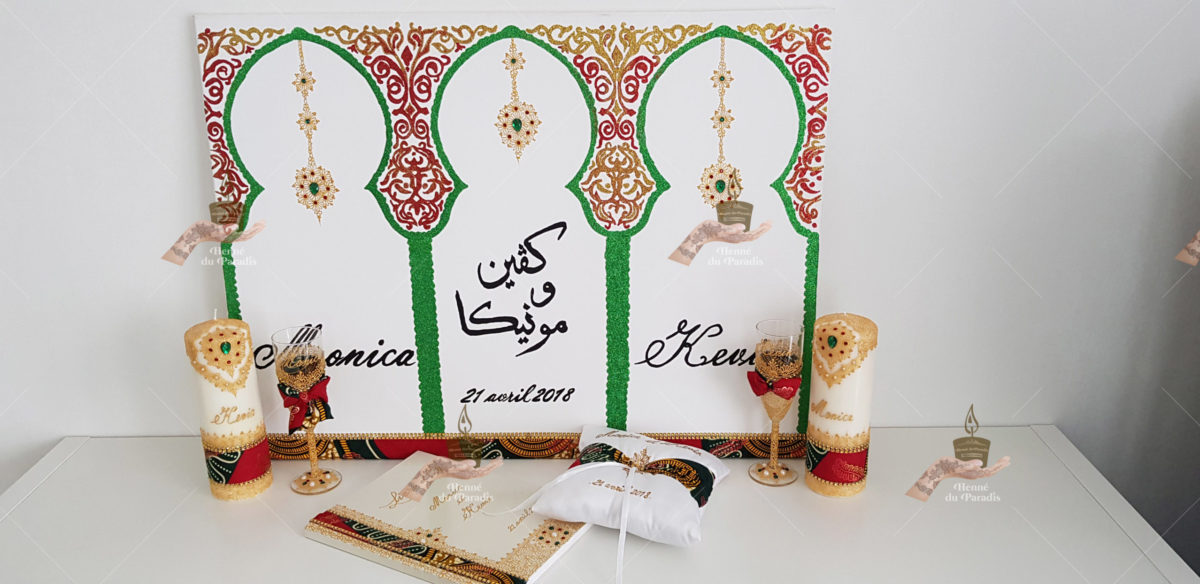 كڤين
و
مونيكا
Monica
Kevin
21 avril 2018
Kevin
Monica
21 avril 2018
Henné
du Paradis
Henné
du Paradis
Henné
du Paradis
Henné
du Paradis